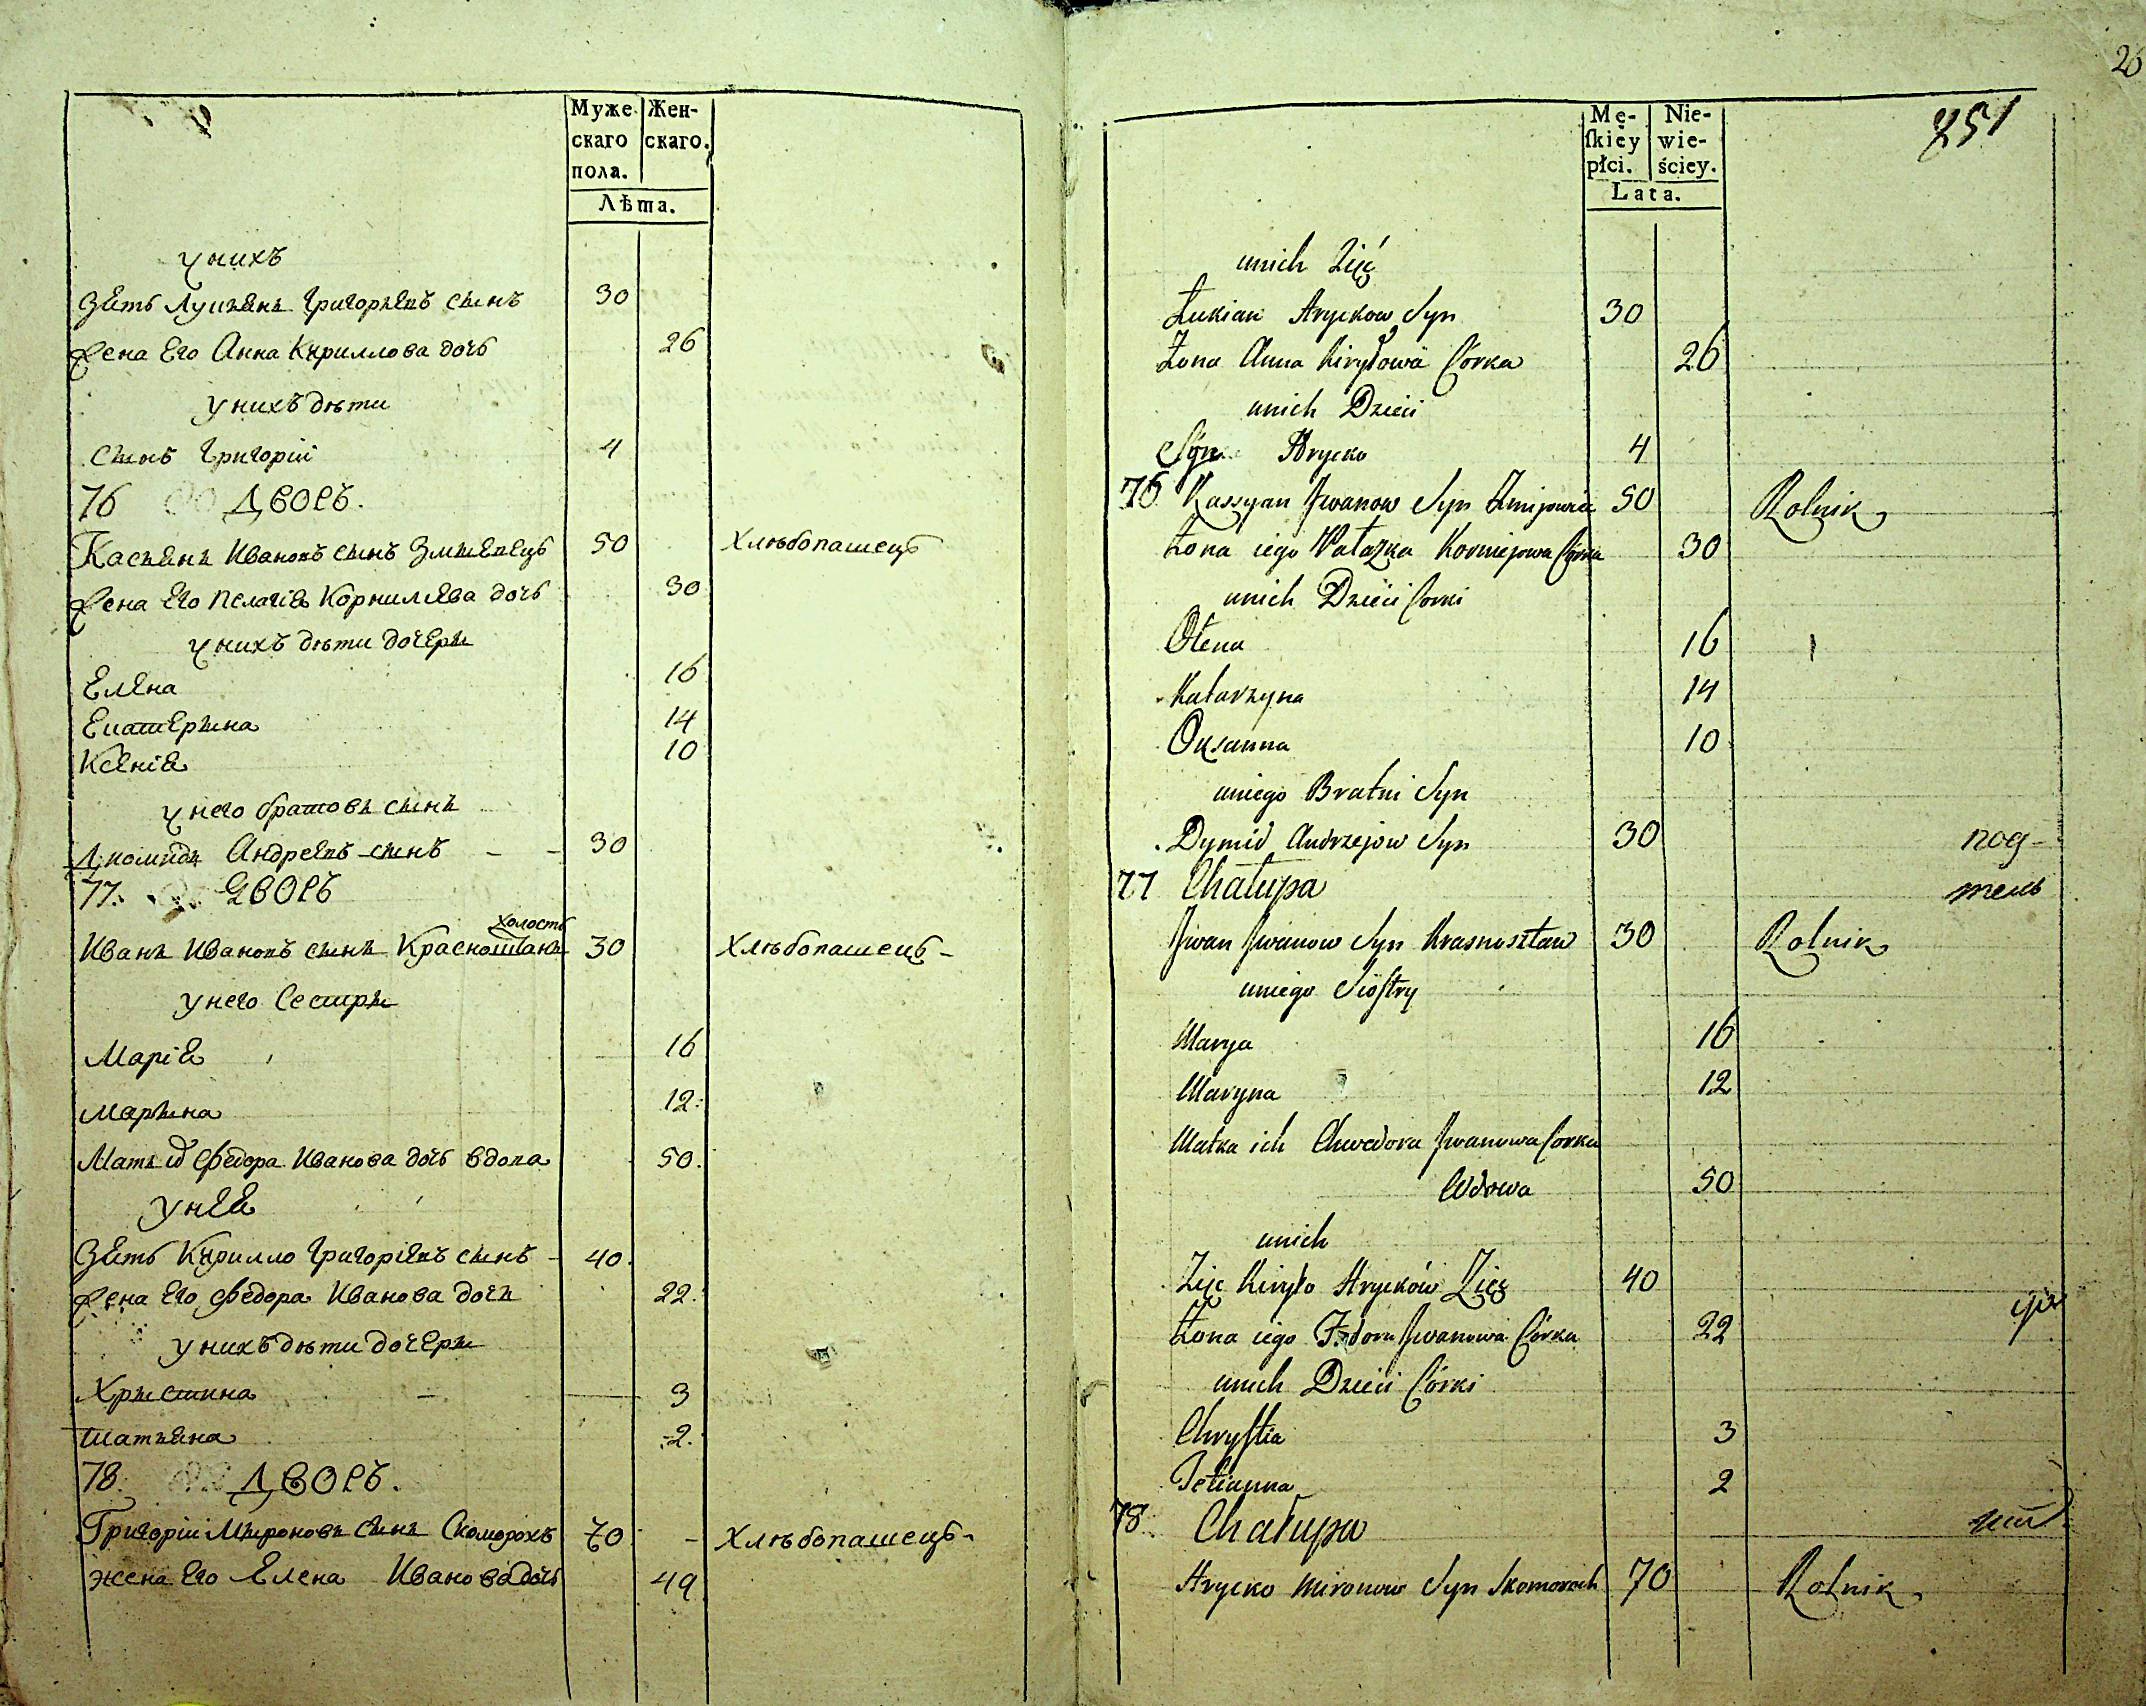 Муже
скаго
пола.
Жен-
скаго.
Лѣта.
у нихъ
Зять Лукьянъ Григорьевъ сынъ 30
жена его Анна Кириллова дочь 26
у нихъ дѣти
сынъ Григорій 4
76 Дворъ.
Касьянъ Ивановъ сынъ Змѣевецъ 50 Хлѣбопашецъ
жена его Пелагія Корнилѣва дочь 30
у нихъ дѣти дочери
Елена 16
Екатерина 14
Ксенія 10
у него братовъ сынъ
Діомидъ Андреевъ сынъ 30
77. Дворъ
холостъ
Иванъ Ивановъ сынъ Красноштанъ 30 Хлѣбопашецъ
у него Сестры
Марія 16
Марина 12
Мать Федора Иванова дочь вдова 50.
у нея
Зять Кирилло Григоріевъ сынъ 40.
жена его Федора Иванова дочь 22.
у нихъ дѣти дочери
Христина 3
Татьяна 2.
78. Дворъ.
Григорій Мироновъ сынъ Скоморохъ 70 Хлѣбопашецъ
жена его Елена Иванова дочь 49
26
251
Mę-
ſkiey
płci.
Nie-
wie-
ściey.
Lata.
unich Zięć
Łukian Hryckow Syn 30
Żona Anna Kiryłowa Córka 26
unich Dzieci
Syn Hrycko 4
76 Kassyan Jwanow Syn Zmijowiec 50 Rolnik
Żona iego Pałazka Korniejowa Córka 30
unich Dzieci Corki
Ołena 16
Katarzyna 14
Oxanna 10
uniego Bratni Syn
Dymid Andrzejow Syn 30 под-
77 Chałupa тель
Jwan Jwanow Syn Krasnosztan 30 Rolnik
uniego Sioſtry
Marya 16
Maryna 12
Matka ich Chwedora Jwanowa Corka
Wdowa 50
unich
Zięc Kiryło Hrycków Zięc 40
Żona iego Fedora Jwanowa Córka 22
unich Dzieci Córki
Chryſtia 3
Tetianna 2
78 Chałupa
Hrycko Mironow Syn Skomoroch 70 Rolnik